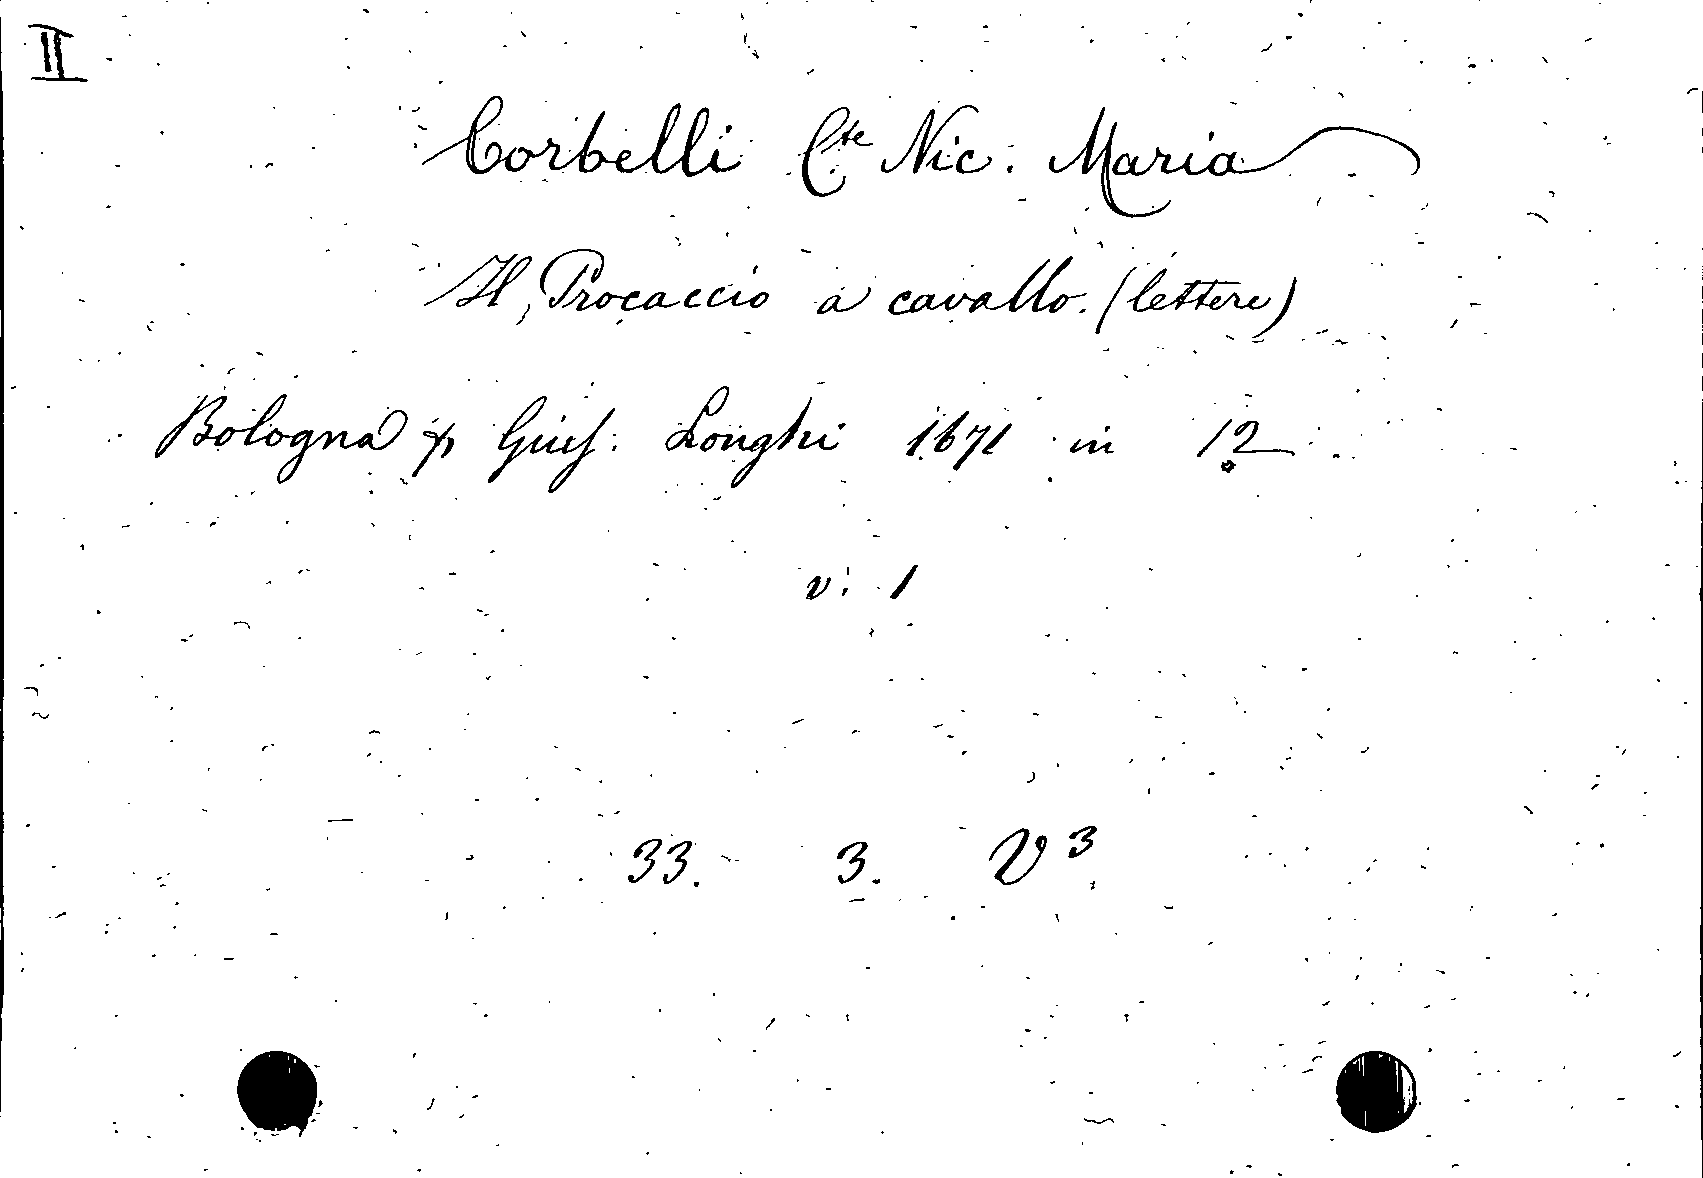 II
Corbelli C.te Nic. Maria
Il Procaccio a cavallo. (lettere)
Bologna p Gius. Longhi 1671 in 12
v. 1
33. 3. V 3